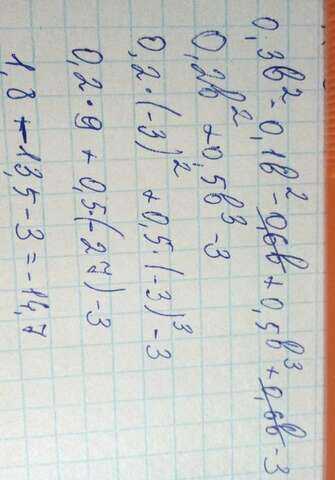 0,3b² - 0,1b² - 0,6b + 0,5b³ + 0,6b - 3
0,2b² + 0,5b³ - 3
0,2·(-3)² + 0,5·(-3)³ - 3
0,2·9 + 0,5·(-27) - 3
1,8 - 13,5 - 3 = -14,7